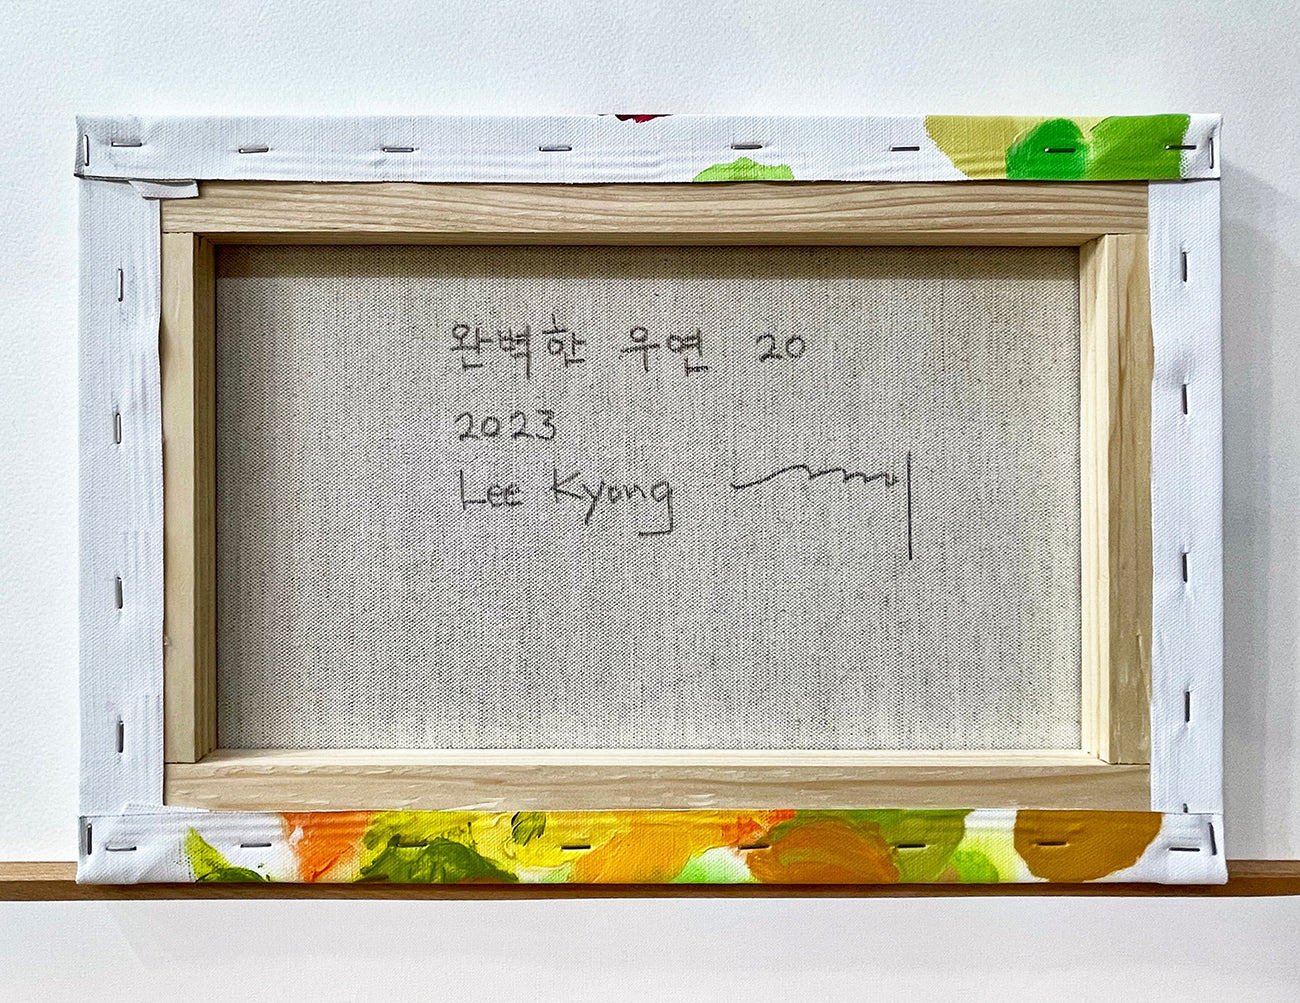 완벽한 우연 20
2023
Lee Kyong